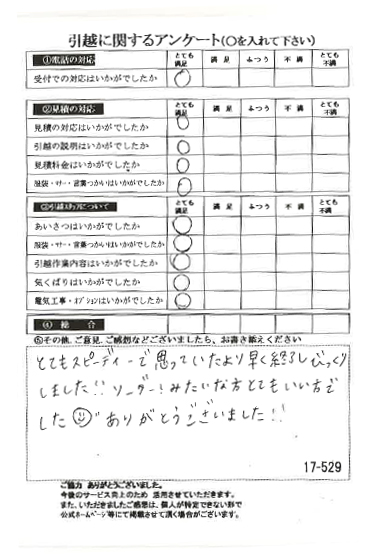 引越に関するアンケート(○を入れて下さい)
①電話の対応 とても満足 満足 ふつう 不満 とても不満
受付での対応はいかがでしたか
②見積の対応 とても満足 満足 ふつう 不満 とても不満
見積の対応はいかがでしたか
引越の説明はいかがでしたか
見積料金はいかがでしたか
服装・マナー・言葉つかいはいかがでしたか
③引越スタッフについて とても満足 満足 ふつう 不満 とても不満
あいさつはいかがでしたか
服装・マナー・言葉つかいはいかがでしたか
引越作業内容はいかがでしたか
気くばりはいかがでしたか
電気工事・オプションはいかがでしたか
④総合
⑤その他、ご意見、ご感想などございましたら、お書き添えください
とてもスピーディーで思っていたより早く終了しびっくり
しました!!リーダー!みたいな方とてもいい方で
した ありがとうございました!!
17-529
ご協力 ありがとうございました。
今後のサービス向上のため 活用させていただきます。
また、いただきましたご感想は、個人が特定できない形で
公式ホームページ等にて掲載させて頂く場合がございます。